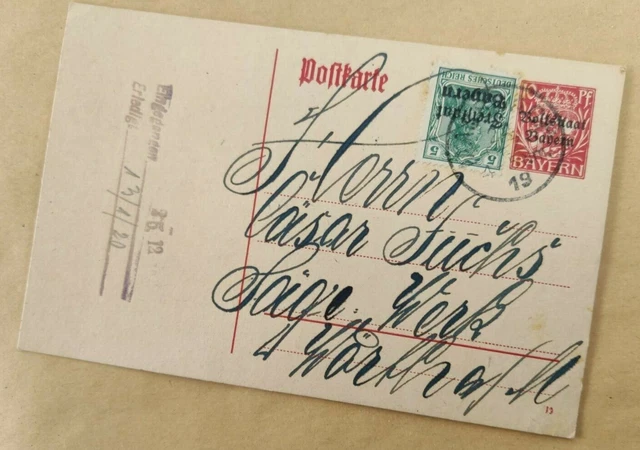 Postkarte
DEUTSCHES REICH
Freistaat
Bayern
5 5
PF
Volksstaat
Bayern
BAYERN
19
Herrn
Cäsar Fuchs
Säge-Werk
Wörth a/M
Eingegangen
Erledigt 13/1/20
12
13